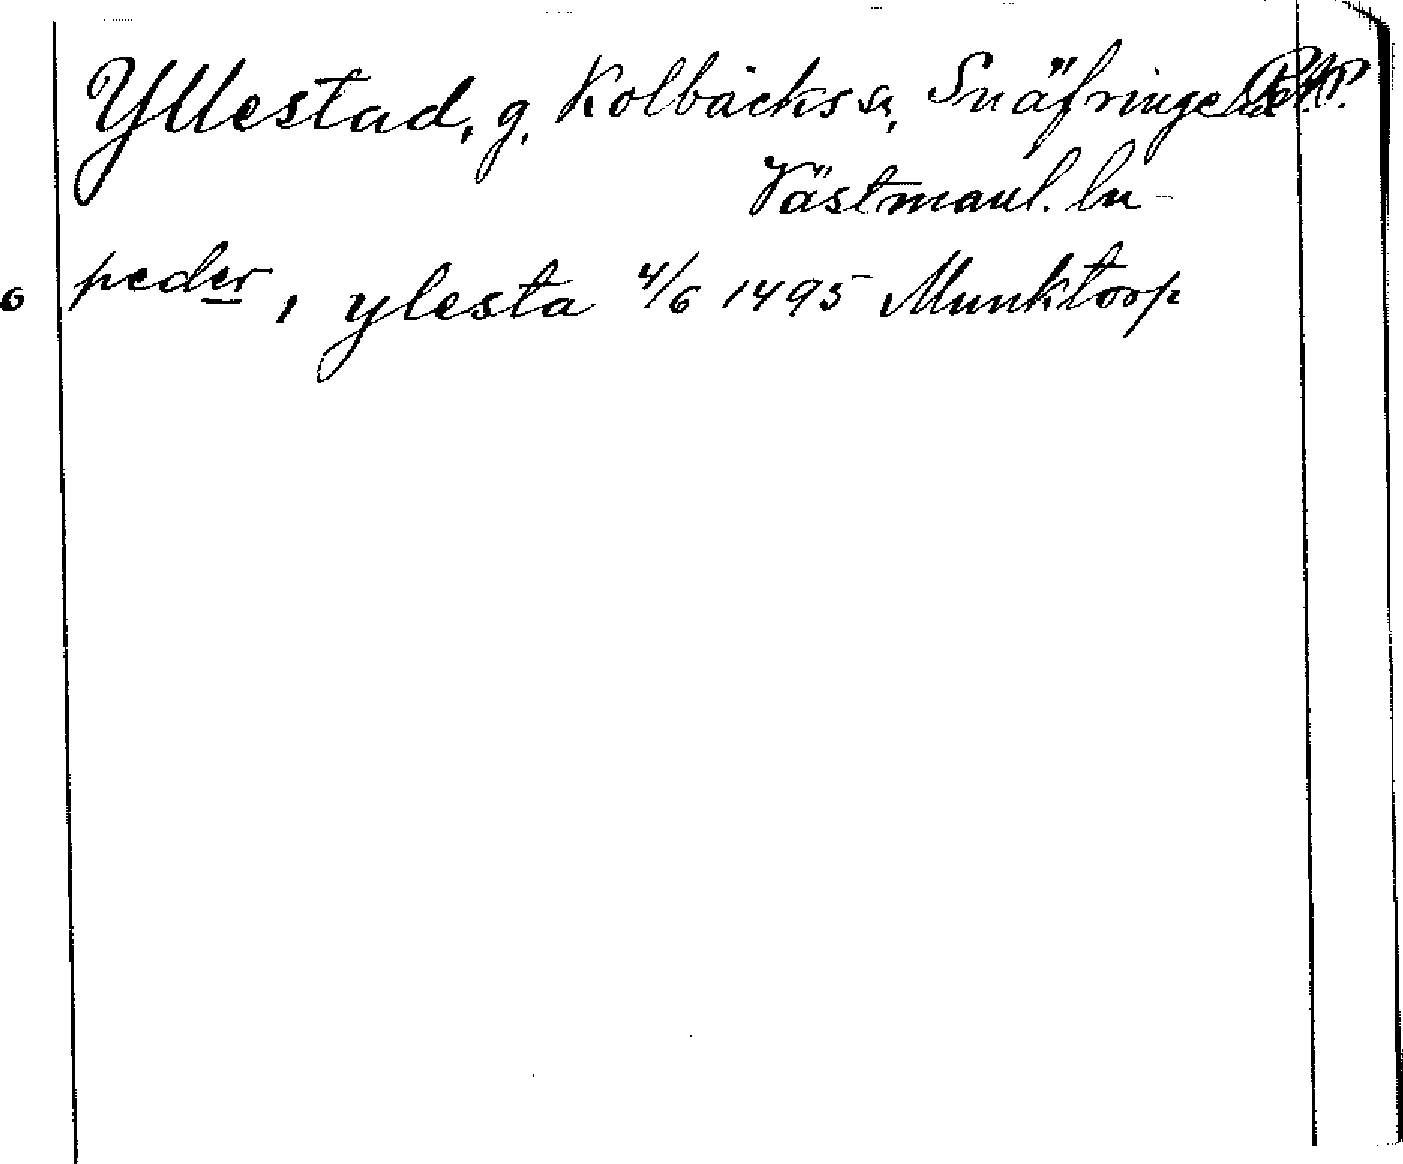 Yllestad, g, Kolbäcks sn, Snäfringe
Västmanl. ln
6 peder, ylesta 4/6 1495 Munktorp